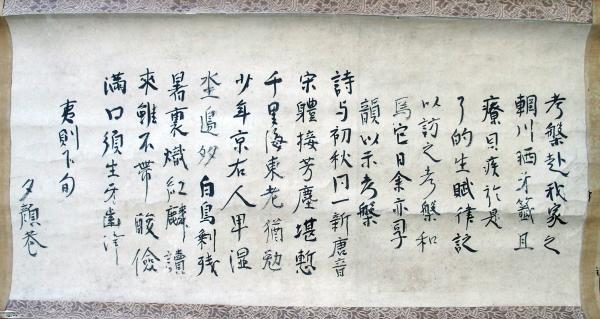 考槃赴我家之
輞川晒牙籤且
療貝疾於是
了的生賦律詑
以訪之考槃和
焉它日余亦同
韻以示考槃
詩与初秋同一新唐音
宋體接芳塵堪慙
千里海東老猶勉
少年京右人卑湿
坐邊妙白鳥剰残
暑裏熾紅麟讀
來雖不帶酸儉
滿口須生牙齒
夷則下旬
夕顔巷